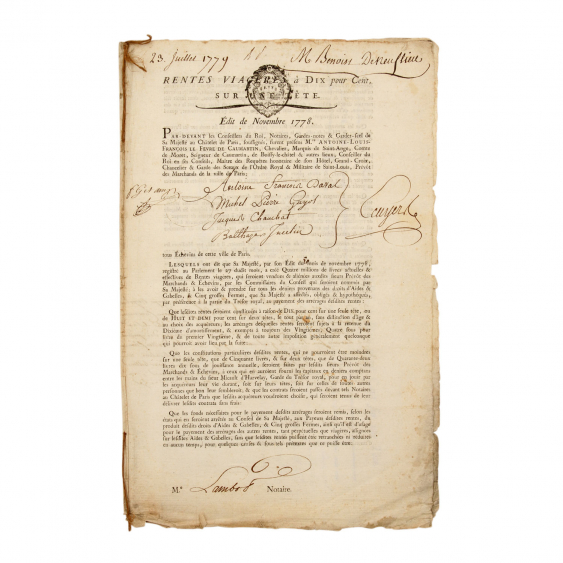 23. Juillet 1779 M Benoist De Neuflieu
RENTES VIAGERES à DIX pour Cent,
SUR UNE TÊTE.
Édit de Novembre 1778.
PAR-DEVANT les Conseillers du Roi, Notaires, Gardes-notes & Gardes-scel de
Sa Majesté au Châtelet de Paris, soussignés, furent présens Mre ANTOINE-LOUIS-
FRANÇOIS LE FEVRE DE CAUMARTIN, Chevalier, Marquis de Saint-Ange, Comte
de Moret, Seigneur de Caumartin, de Boissy-le-châtel & autres lieux, Conseiller du
Roi en ses Conseils, Maître des Requêtes honoraire de son Hôtel, Grand-Croix,
Chancelier & Garde des Sceaux de l'Ordre Royal & Militaire de Saint-Louis, Prévôt
des Marchands de la ville de Paris;
Antoine François Daval
Michel Pierre Guyot
Jacques Chauchat
Balthazar Incelin
Ecuyers
tous Échevins de cette ville de Paris.
LESQUELS ont dit que Sa Majesté, par son Édit du mois de novembre 1778,
registré au Parlement le 27 desdits mois, a créé Quatre millions de livres actuelles &
effectives de Rentes viagères, qui seroient vendues & aliénées auxdits Sieurs Prévôt des
Marchands & Échevins, par les Commissaires du Conseil qui seroient nommés par
Sa Majesté; à les avoir & prendre sur tous les deniers provenans des droits d'Aides &
Gabelles, & Cinq grosses Fermes, que Sa Majesté a affectés, obligés & hypothéqués,
par préférence à la partie du Trésor royal, au payement des arrérages desdites rentes:
Que lesdites rentes seroient constituées à raison de DIX pour cent sur une seule tête, ou
de HUIT ET DEMI pour cent sur deux têtes, le tout, sans distinction d'âge & au
choix des acquéreurs, les arrérages desquelles rentes seroient sujets à la retenue du
Dixième d'amortissement, & exempts à toujours des Vingtièmes, Quatre sous pour
livre du premier Vingtième, & de toute autre imposition généralement quelconque
qui pourroit avoir lieu par la suite.
Que les constitutions particulières desdites rentes, qui ne pourroient être moindres
sur une seule tête, que de Cinquante livres, & sur deux têtes, que de Quarante-deux
livres dix sous de jouissance annuelle, seroient faites par lesdits Sieurs Prévôt des
Marchands & Échevins, à ceux qui en auroient fourni les capitaux en deniers comptans
entre les mains du sieur Micault d'Harvelay, Garde du Trésor royal, pour en jouir par
les acquéreurs leur vie durant, soit sur leurs têtes, soit sur celles de toutes autres
personnes que bon leur sembleroit, & que les contrats en seroient passés par tel Notaire
au Châtelet de Paris que lesdits acquéreurs voudroient choisir, qui seroient tenus de leur
délivrer lesdits contrats sans frais.
Que les fonds nécessaires pour le payement desdits arrérages seroient remis, selon les
états qui en seroient arrêtés au Conseil de Sa Majesté, aux Payeurs desdites rentes, du
produit desdits droits d'Aides & Gabelles, & Cinq grosses Fermes, ainsi qu'il est d'usage
pour le payement des arrérages des autres rentes, tant perpétuelles que viagères, assignées
sur lesdites Aides & Gabelles, sans que lesdites rentes puissent être retranchées ni réduites
en autres temps, pour quelques besoins & sous tels prétextes que ce puisse être.
Me. Lambot Notaire.